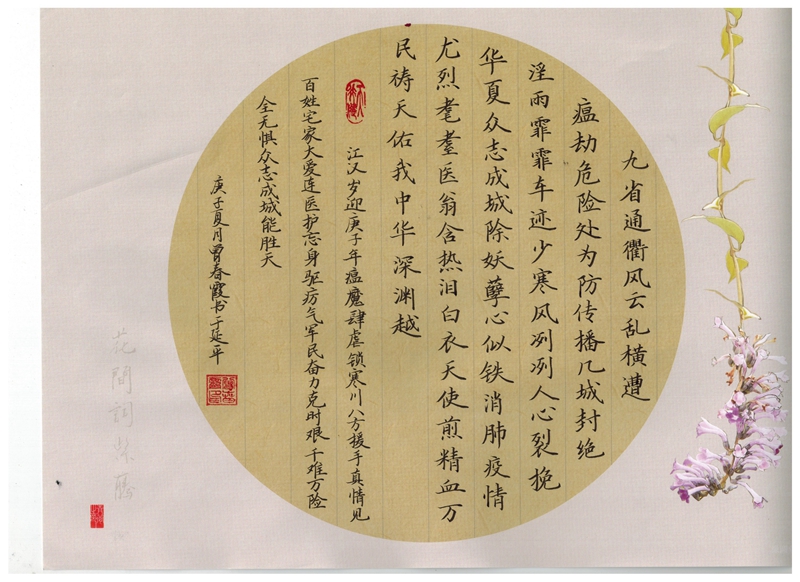 九省通衢风云乱横遭
瘟劫危险处为防传播几城封绝
淫雨霏霏车迹少寒风冽冽人心裂挽
华夏众志成城除妖孽心似铁消肺疫情
尤烈耄耋医翁含热泪白衣天使煎精血万
民祷天佑我中华深渊越
江汉岁迎庚子年瘟魔肆虐锁寒川八方援手真情见
百姓宅家大爱连医护忘身驱疠气军民奋力克时艰千难万险
全无惧众志成城能胜天
庚子夏月曾春霞书于延平
花間詞